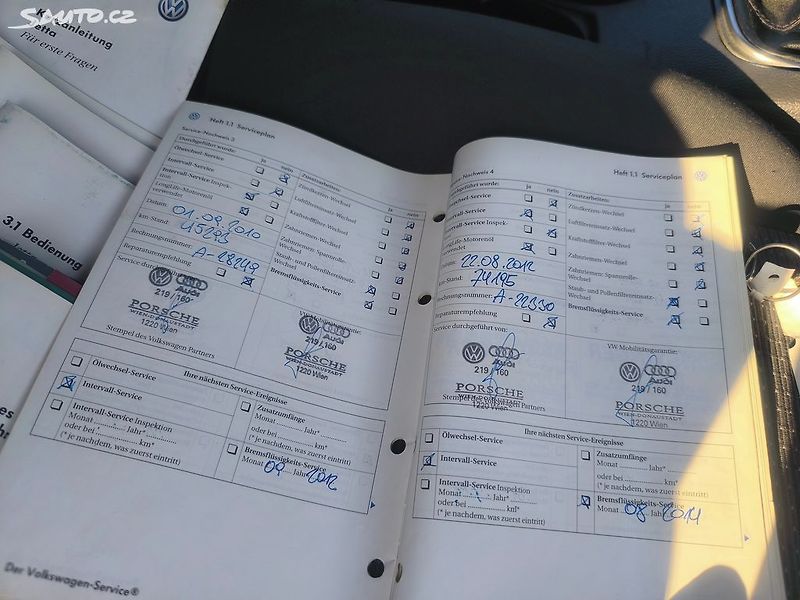 SAUTO.CZ
Kurzanleitung
Jetta
Für erste Fragen
3.1 Bedienung
Heft 1.1 Serviceplan
Service-Nachweis 3
Durchgeführt wurde:
ja
nein
Ölwechsel-Service
Intervall-Service
Intervall-Service Inspektion
LongLife-Motorenöl
verwendet
Datum:
01.09.2010
km-Stand:
45295
Rechnungsnummer:
A-28249
Reparaturempfehlung
Service durchgeführt von:
219 / 160
PORSCHE
WIEN-DONAUSTADT
1220 Wien
Stempel des Volkswagen Partners
Zusatzarbeiten:
ja
nein
Zündkerzen-Wechsel
Luftfiltereinsatz-Wechsel
Kraftstofffilter-Wechsel
Zahnriemen-Wechsel
Zahnriemen- Spannrolle-
Wechsel
Staub- und Pollenfiltereinsatz-
Wechsel
Bremsflüssigkeits-Service
VW Mobilitätsgarantie:
Audi
219 / 160
PORSCHE
WIEN-DONAUSTADT
1220 Wien
Ihre nächsten Service-Ereignisse
Ölwechsel-Service
Intervall-Service
Intervall-Service Inspektion
Monat Jahr*
oder bei km*
(* je nachdem, was zuerst eintritt)
Zusatzumfänge
Monat Jahr*
oder bei km*
(* je nachdem, was zuerst eintritt)
Bremsflüssigkeits-Service
Monat 09 Jahr 2012
Der Volkswagen-Service®
Heft 1.1 Serviceplan
Service-Nachweis 4
Durchgeführt wurde:
ja
nein
Ölwechsel-Service
Intervall-Service
Intervall-Service Inspektion
LongLife-Motorenöl
verwendet
Datum:
22.08.2012
km-Stand:
74195
Rechnungsnummer:
A-22330
Reparaturempfehlung
Service durchgeführt von:
Audi
219 / 160
PORSCHE
WIEN-DONAUSTADT
1220 Wien
Stempel des Volkswagen Partners
Zusatzarbeiten:
ja
nein
Zündkerzen-Wechsel
Luftfiltereinsatz-Wechsel
Kraftstofffilter-Wechsel
Zahnriemen-Wechsel
Zahnriemen- Spannrolle-
Wechsel
Staub- und Pollenfiltereinsatz-
Wechsel
Bremsflüssigkeits-Service
VW Mobilitätsgarantie:
Audi
219 / 160
PORSCHE
WIEN-DONAUSTADT
1220 Wien
Ihre nächsten Service-Ereignisse
Ölwechsel-Service
Intervall-Service
Intervall-Service Inspektion
Monat Jahr*
oder bei km*
(* je nachdem, was zuerst eintritt)
Zusatzumfänge
Monat Jahr*
oder bei km*
(* je nachdem, was zuerst eintritt)
Bremsflüssigkeits-Service
Monat 08 Jahr 2014